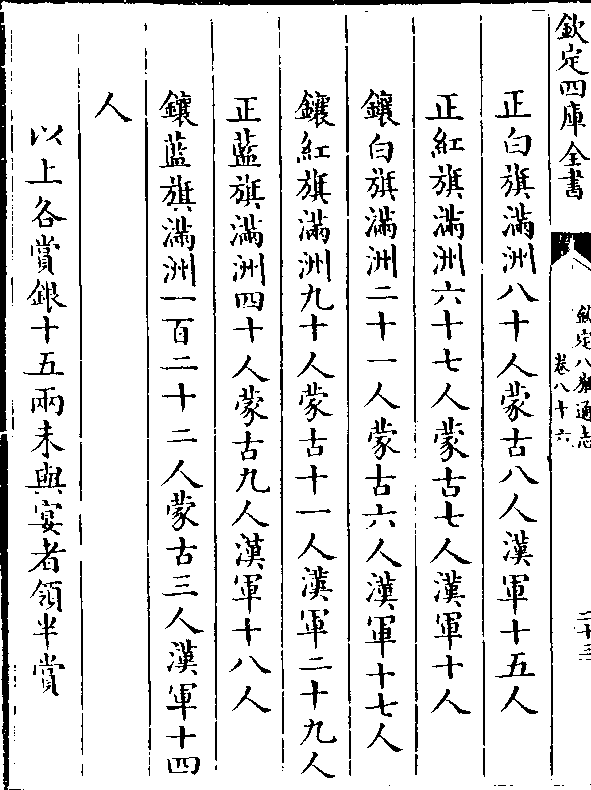 欽定四庫全書
欽定八旗通志
卷八十六
二十三
正白旗滿洲八十人蒙古八人漢軍十五人
正紅旗滿洲六十七人蒙古七人漢軍十人
鑲白旗滿洲二十一人蒙古六人漢軍十七人
鑲紅旗滿洲九十人蒙古十一人漢軍二十九人
正藍旗滿洲四十人蒙古九人漢軍十八人
鑲藍旗滿洲一百二十二人蒙古三人漢軍十四
人
以上各賞銀十五兩未與宴者領半賞